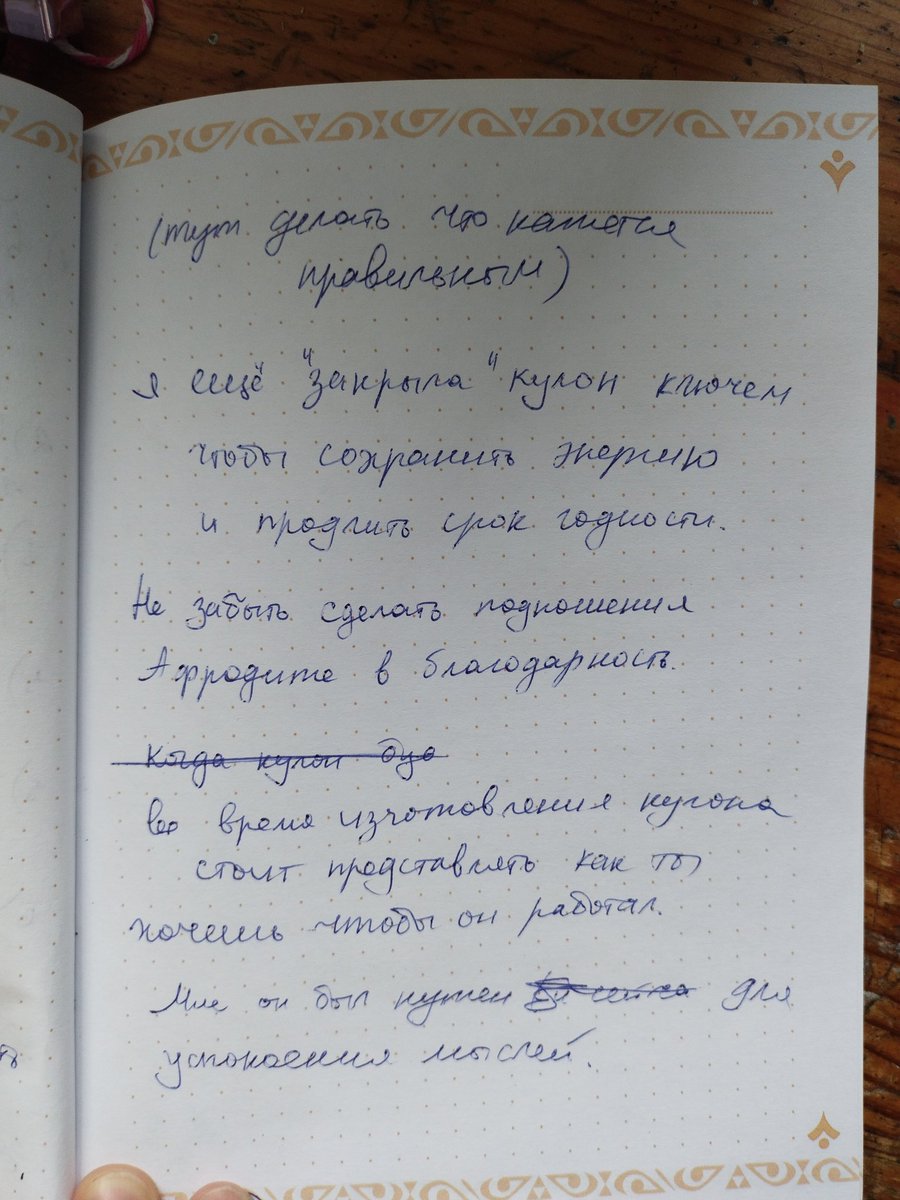 (тут делать что кажется
правильным)
я ещё "закрыла" кулон ключем
чтобы сохранить энергию
и продлить срок годности.
Не забыть сделать подношения
Афродите в благодарность.
Когда кулон
во время изготовления кулона
стоит представлять как ты
хочешь чтобы он работал.
Мне он был нужен для
успокоения мыслей.